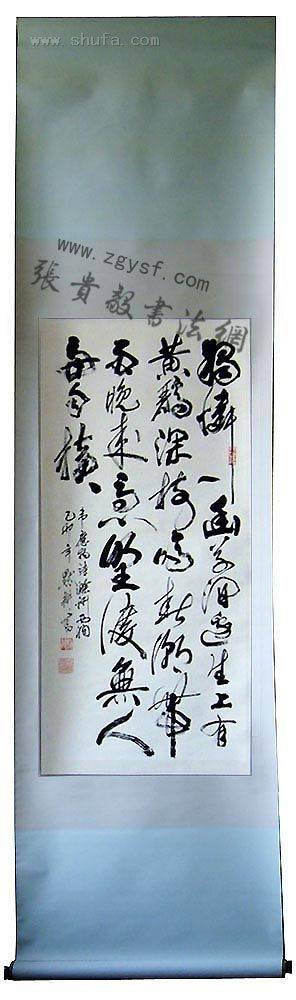 www.shufa.com
www.zgysf.com
張貴毅書法網
獨憐幽草澗邊生上有
黃鸝深樹鳴春潮帶
雨晚來急野渡無人
舟自橫
韋應物詩滁州西澗
乙酉年貴毅書